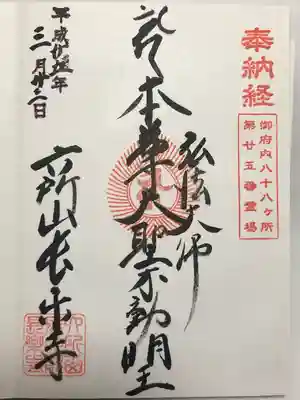 奉納経
御府内八十八ヶ所
第廿五番霊場
弘法大師
本尊大聖不動明王
六所山長楽寺
平成廿五年
三月廿二日